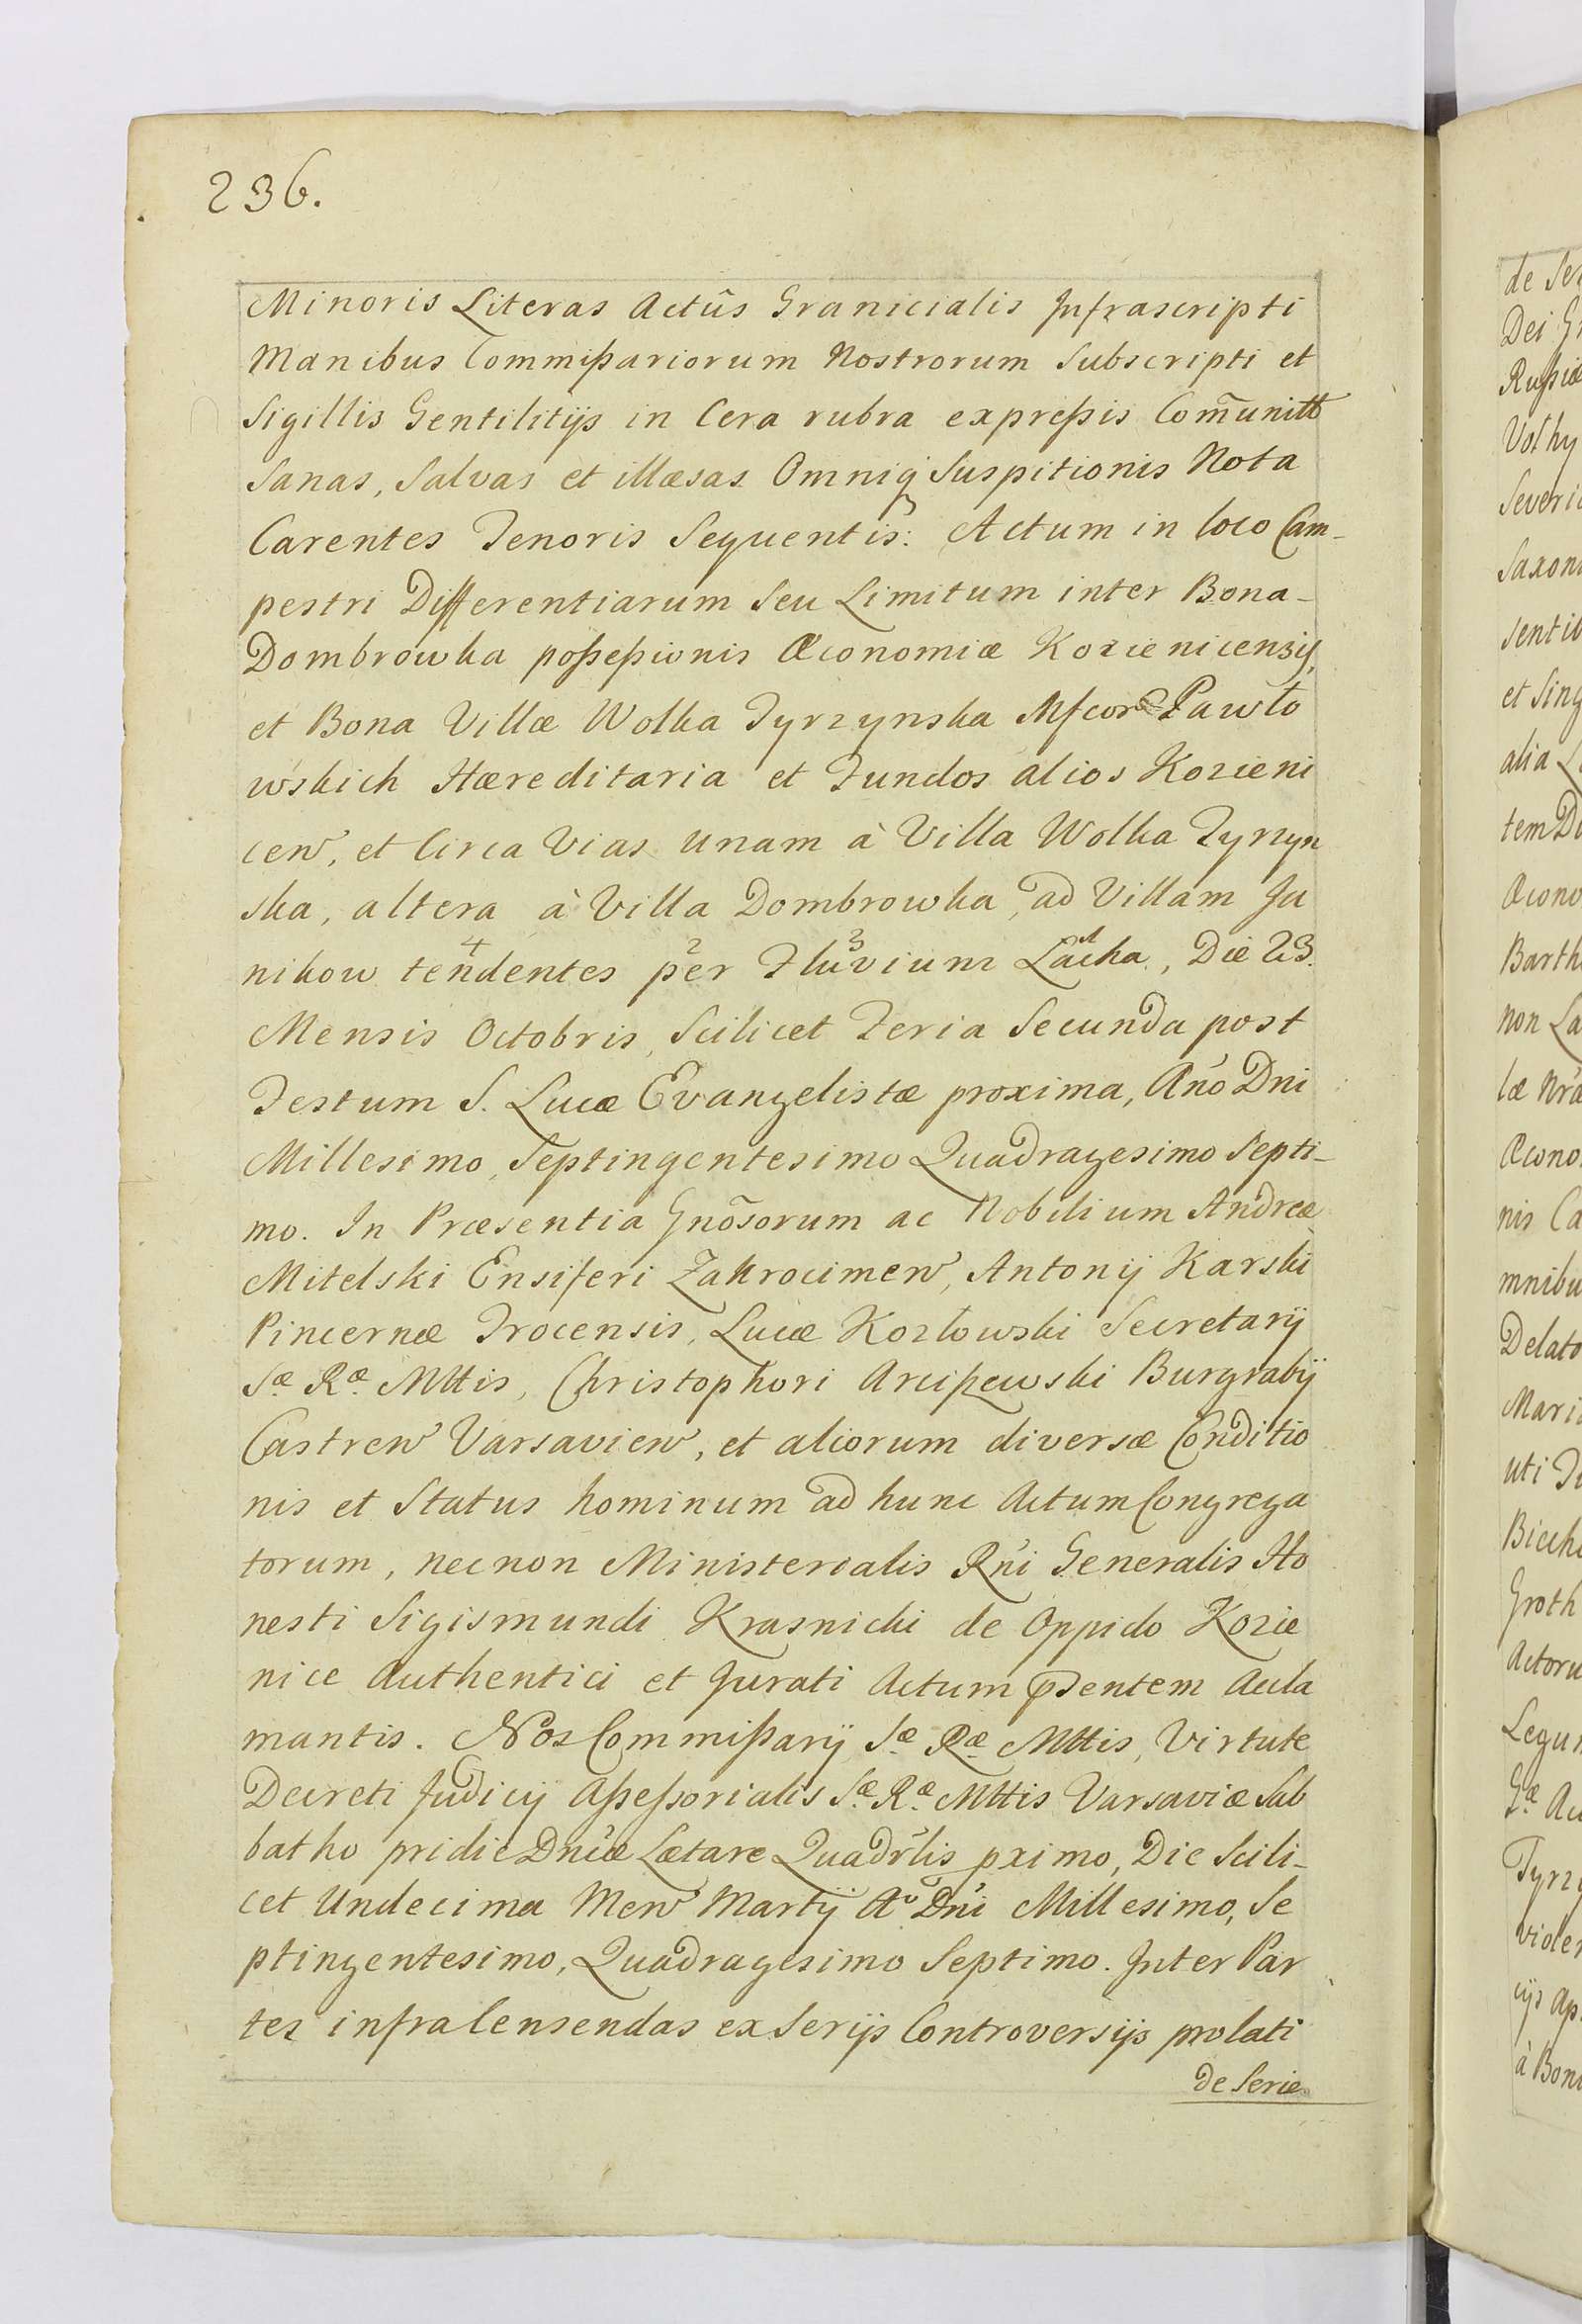 236.
Minoris Literas Actûs Granicialis Infrascripti
Manibus Commißariorum Nostrorum Subscripti et
Sigillis Gentilitijs in Cera rubra expreßis Com̃unitt
Sanas, Salvas et illæsas Omniq̃ Suspitionis Nota
Carentes Tenoris Sequentis: Actum in loco Cam-
pestri Differentiarum Seu Limitum inter Bona-
Dombrowka poßeßionis Œconomiæ Kozienicensis,
et Bona Villæ Wolka Tyrzynska Mfcor Pawło
wskich Hæreditaria et Fundos alios Kozieni
cen, et Circa Vias unam à Villa Wolka Tyrzyn
ska, altera à Villa Dombrowka, ad Villam Ja
nikow tendentes per Fluvium Łacha, Die 23.
4 2 3 1
Mensis Octobris, Scilicet Feria Secunda post
Festum S. Lucæ Evangelistæ proxima, Ano Dni
Millesimo, Septingentesimo Quadragesimo Septi-
mo. In Præsentia Gnõsorum ac Nobilium Andreæ
Mitelski Ensiferi Zakrocimen, Antonij Karski
Pincernæ Trocensis, Lucæ Kozłowski Secretarij
Sæ Ræ Mttis, Christophori Arcißewski Burgrabij
Castren Varsavien, et aliorum diversæ Conditio
nis et Status hominum ad hunc Actum Congrega
torum, necnon Ministerialis Rni Generalis Ho
nesti Sigismundi Krasnicki de Oppido Kozie
nice Authentici et Jurati Actum pntem Accla
mantis. Nos Commißarij Sæ Ræ Mttis, Virtute
Decreti Judicij Aßeßorialis Sæ Ræ Mttis Varsaviæ Sab
batho pridie Dnicæ Lætare Quadrlis pximo, Die Scili-
cet Undecima Men Martij Ao Dni Millesimo, Se
ptingentesimo, Quadragesimo Septimo. Inter Par
tes infra Censendas ex Serijs Controversijs prolati
de Serie
de Se
Dei G
Rußiæ
Volhy
Severi
Saxon
sentib
et Sing
alia
tem D
Œcono
Barth
non La
læ Nræ
Œcono
nis Ca
mnibu
Delato
Mari
uti
Biech
Groth
Actoru
Legum
Tyrz
violen
cijs ap
à Bon